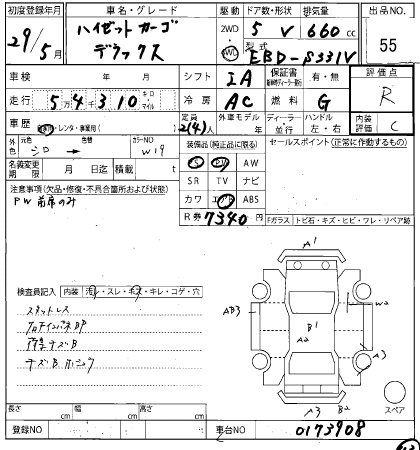 初度登録年月 車名・グレード 駆動 ドア数・形状 排気量 出品NO.
29年5月 ハイゼットカーゴ デラックス 2WD 4WD 5 V 660 cc 55
型式 EBD-S331V
車検 年 月 シフト IA 保証書 有・無 評価点
走行 5万4千310 キロ マイル 冷房 AC 燃料 G R
車歴 レンタ・事業用( ) 定員 2(4)人 外車モデル 年 ディーラー・並行 ハンドル 左・右 内装評価 C
外色 元色 シロ 色替 カラーNO W19 装備品 (純正品に限る) セールスポイント (正常に作動するもの)
名義変更期限 月 日迄 積載 t PS PW AW
注意事項(欠品・修復・不具合箇所および状態) SR TV ナビ
PW 前席のみ カワ エアB ABS
R券 7340円 Fガラス トビ石・キズ・ヒビ・ワレ・リペア跡
検査員記入 内装 汚レ・スレ・キズ・キレ・コゲ・穴
スタットレス
キズB
A1
AB3 W2
B1
A2
A3
A3 B2 スペア
長さ cm 幅 cm 高さ cm
登録NO 車台NO 0173908